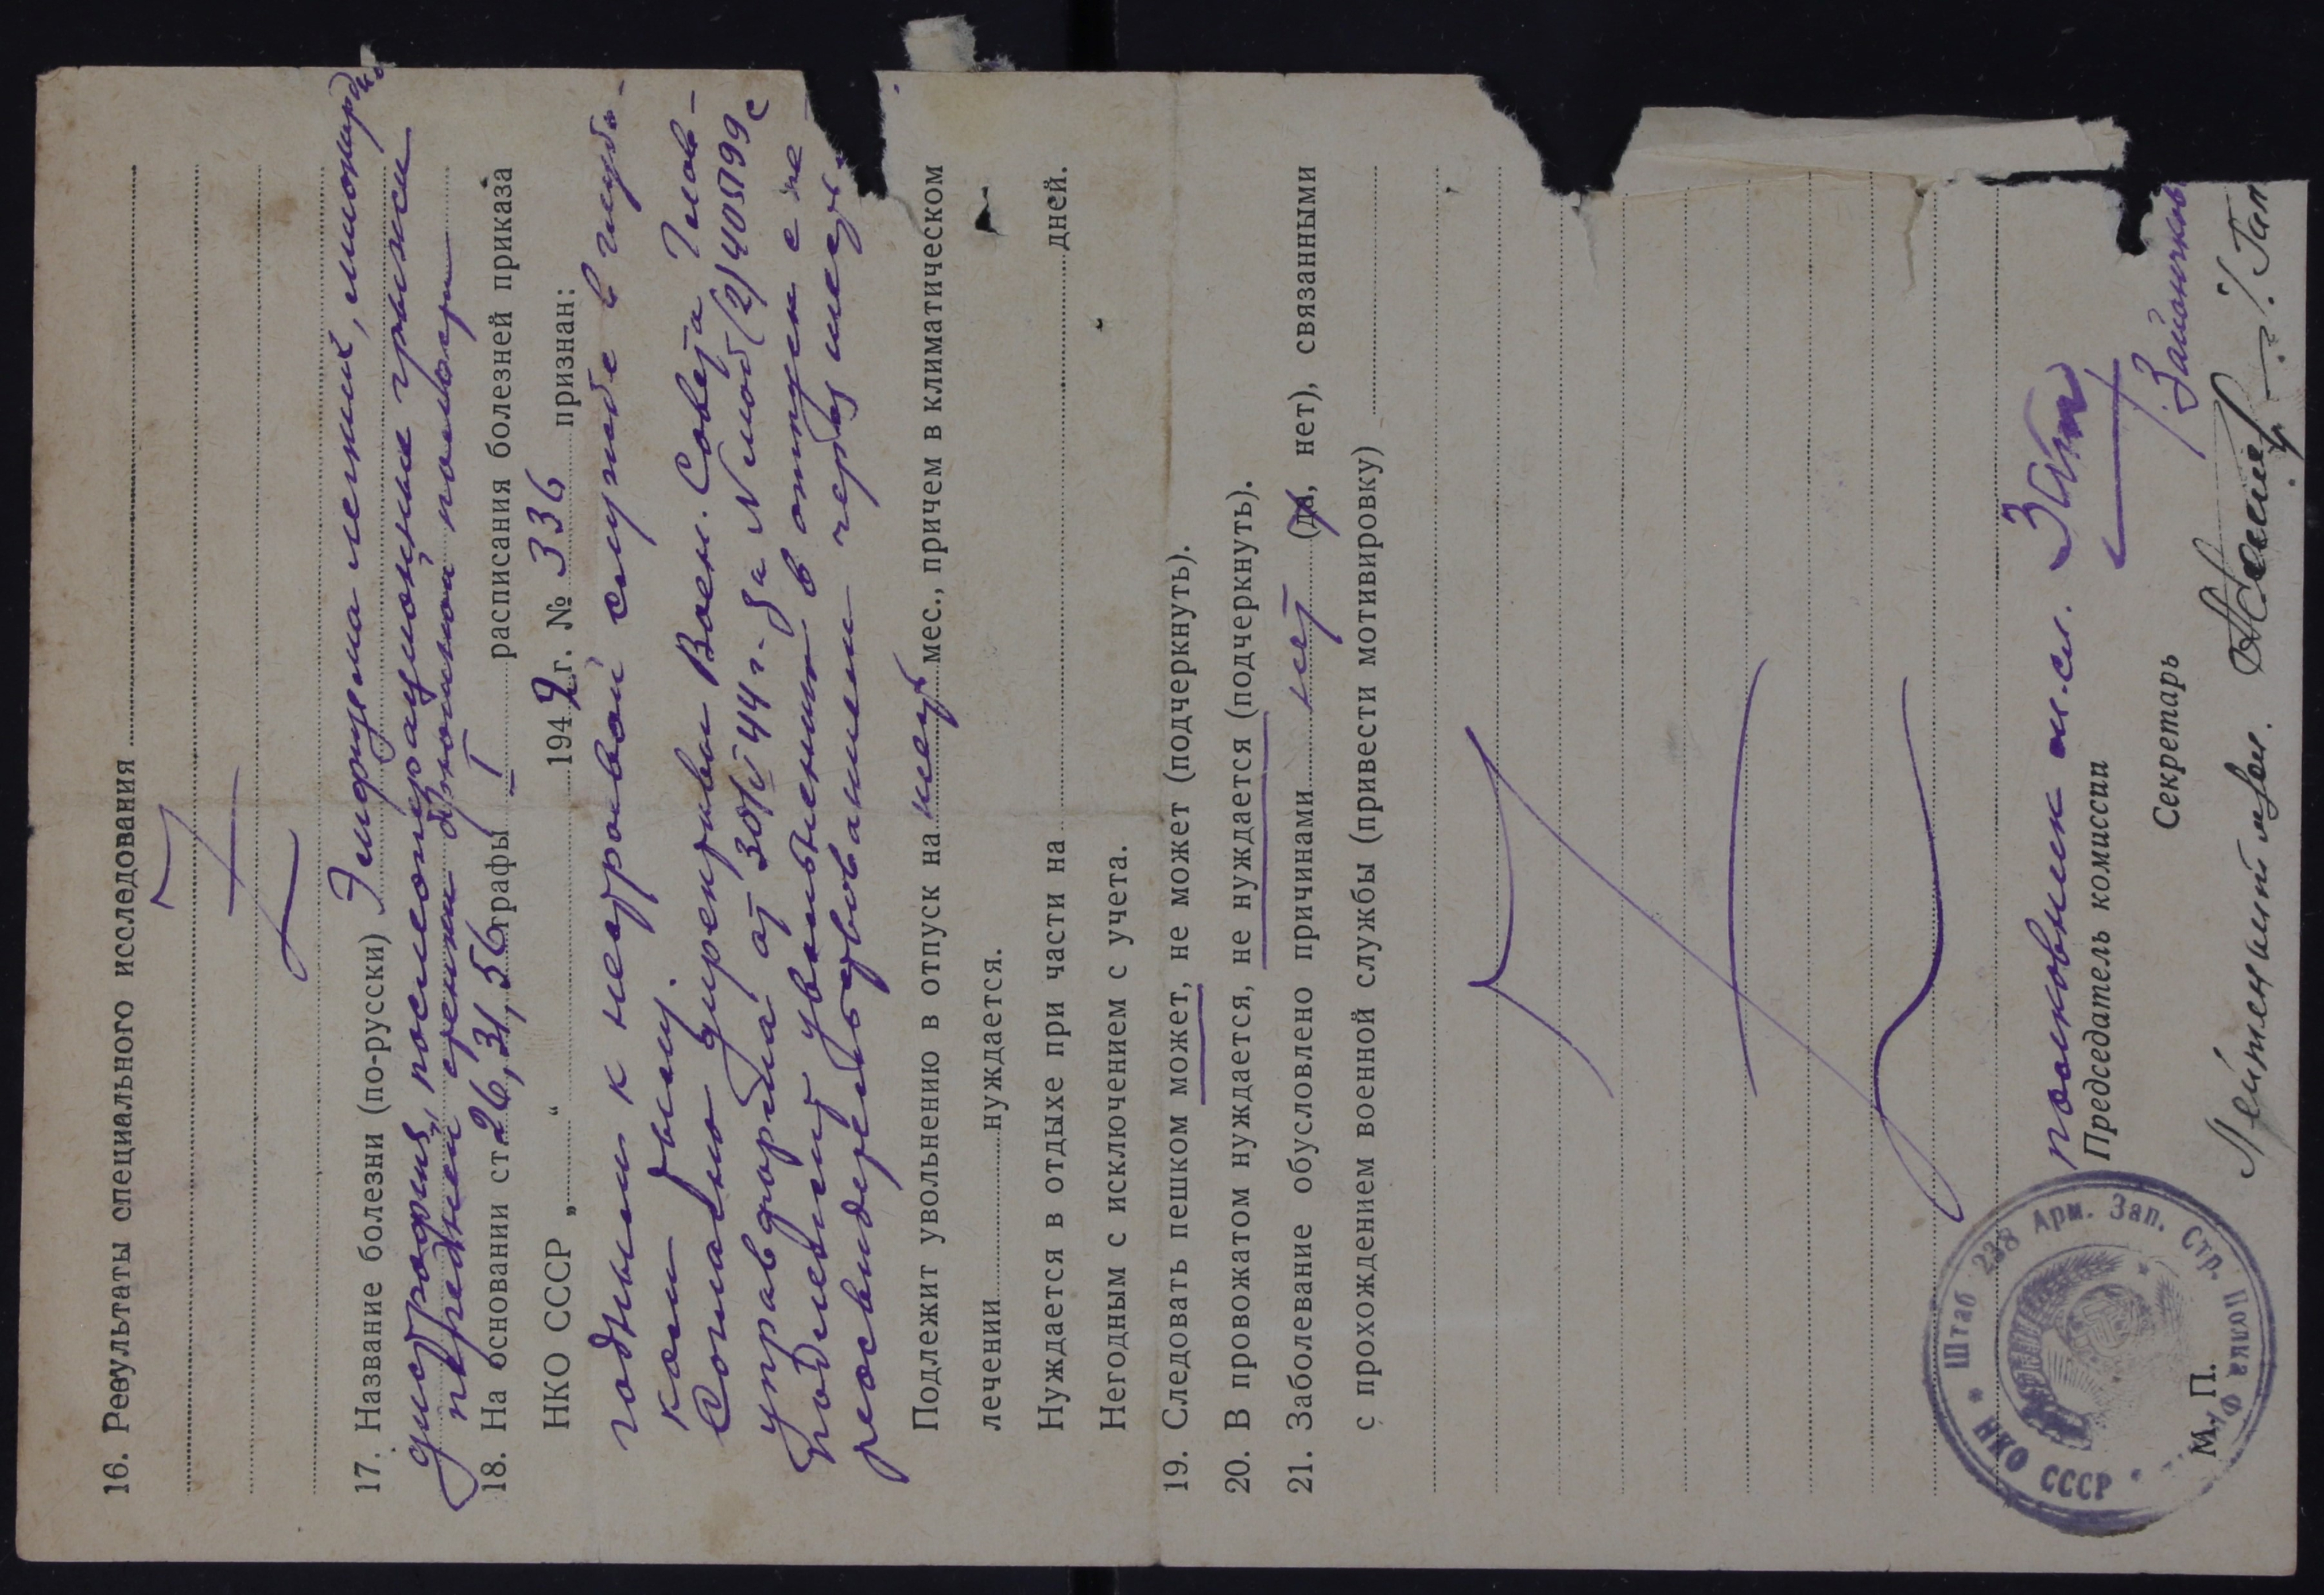 16. Результаты специального исследования
17. Название болезни (по-русски) Эмфизема легких, миокарда
дистрофия, послеоперационные грыжи
передней стенки брюшной полости
18. На основании ст. 26, 31, 56 графы I расписания болезней приказа
НКО СССР „ “ 1942 г. № 336 признан:
годным к нестроевой службе в глубо-
ком тылу.
Согласно директивы Воен. Совета Глав-
управформа от 30/V 44 г. за № моб(2)/405199 с
подлежит увольнению в отпуск с пе
реосвидетельствованием через месяц.
Подлежит увольнению в отпуск на месяц мес., причем в климатическом
лечении нуждается.
Нуждается в отдыхе при части на дней.
Негодным с исключением с учета.
19. Следовать пешком может, не может (подчеркнуть).
20. В провожатом нуждается, не нуждается (подчеркнуть).
21. Заболевание обусловлено причинами нет (да, нет), связанными
с прохождением военной службы (привести мотивировку)
полковник м.сл.
Председатель комиссии
Секретарь
Лейтенант
М. П.
НКО СССР * Штаб 238 Арм. Зап. Стр. Полка